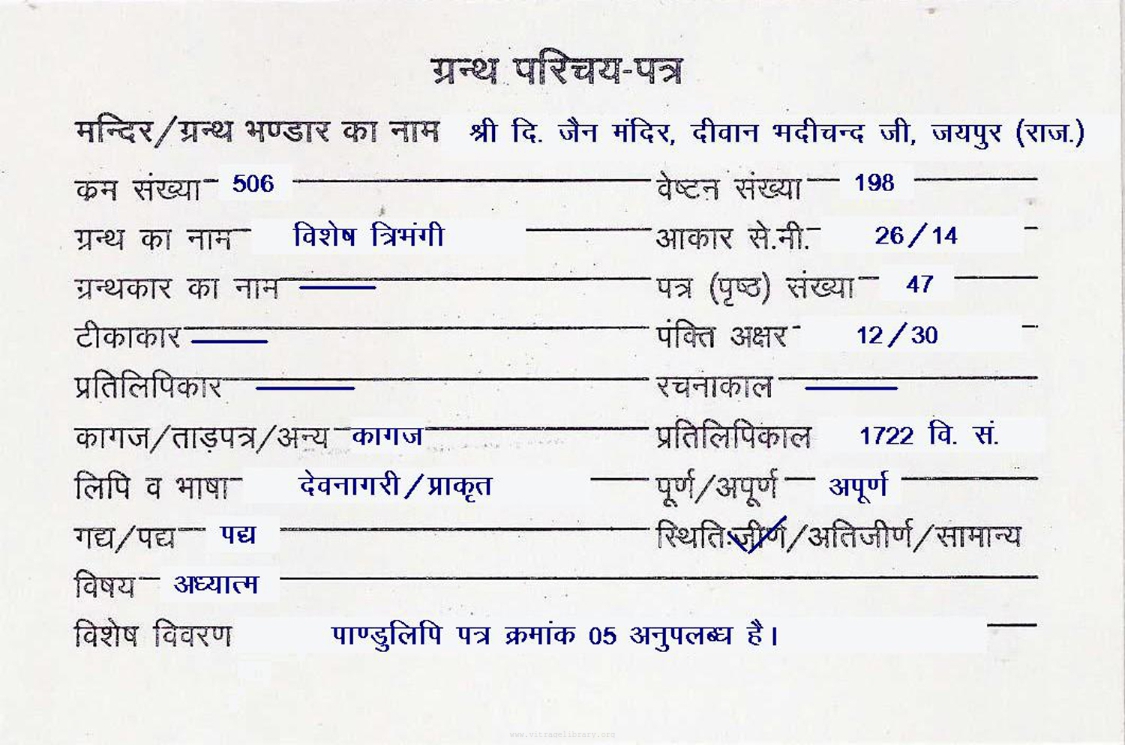 ग्रन्थ परिचय-पत्र
मन्दिर/ग्रन्थ भण्डार का नाम श्री दि. जैन मंदिर, दीवान भदीचन्द जी, जयपुर (राज.)
क्रम संख्या 506 वेष्टन संख्या 198
ग्रन्थ का नाम विशेष त्रिभंगी आकार से.मी. 26/14
ग्रन्थकार का नाम — पत्र (पृष्ठ) संख्या 47
टीकाकार — पंक्ति अक्षर 12/30
प्रतिलिपिकार — रचनाकाल —
कागज/ताड़पत्र/अन्य कागज प्रतिलिपिकाल 1722 वि. सं.
लिपि व भाषा देवनागरी/प्राकृत पूर्ण/अपूर्ण अपूर्ण
गद्य/पद्य पद्य स्थितिःजीर्ण/अतिजीर्ण/सामान्य
विषय अध्यात्म
विशेष विवरण पाण्डुलिपि पत्र क्रमांक 05 अनुपलब्ध है।